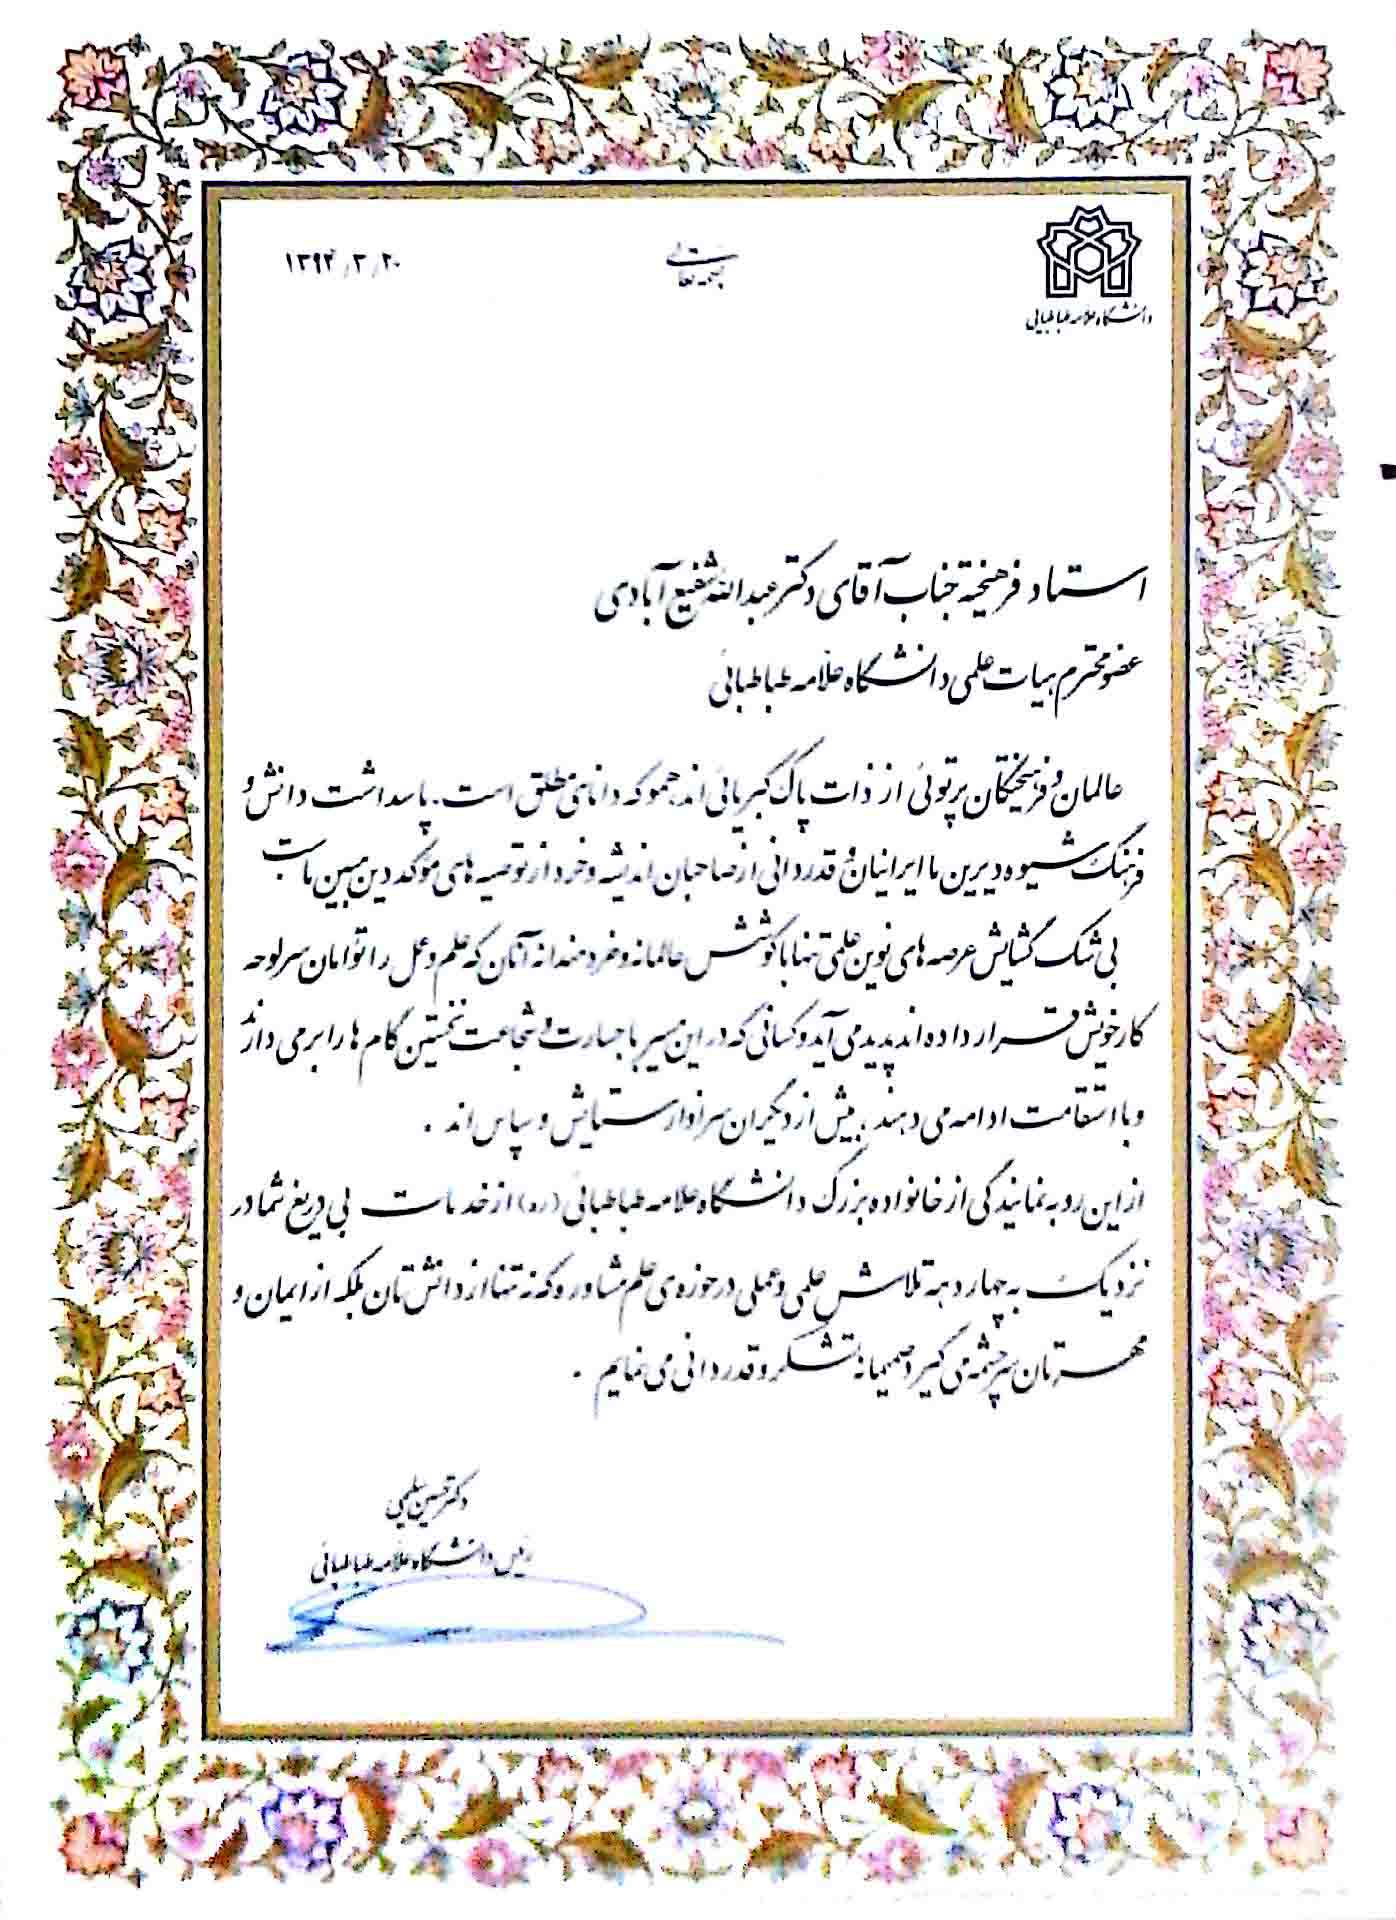 دانشگاه علامه طباطبائی
بسمه تعالی
۱۳۹۴/۳/۲۰
استاد فرهیخته جناب آقای دکتر عبدالله شفیع آبادی
عضو محترم هیات علمی دانشگاه علامه طباطبائی
عالمان و فرهیختگان پرتوئی از ذات پاک کبریائی اند همو که دانای مطلق است. پاسداشت دانش و
فرهنگ شیوه دیرین ما ایرانیان و قدردانی از صاحبان اندیشه و خرد از توصیه های موکد دین مبین ماست
بی شک گشایش عرصه های نوین علمی تنها با کوشش عالمانه و خردمندانه آنان که علم و عمل را توامان سرلوحه
کار خویش قرار داده اند پدید می آید و کسانی که در این سیر با جسارت و شجاعت نخستین گام ها را بر می دارند
و با استقامت ادامه می دهند، بیش از دیگران سزاوار ستایش و سپاس اند .
از این رو به نمایندگی از خانواده بزرگ دانشگاه علامه طباطبائی (ره) از خدمات بی دریغ شما در
نزدیک به چهار دهه تلاش علمی و عملی در حوزه ی علم مشاوره که نه تنها از دانش تان بلکه از ایمان و
مهرتان سرچشمه می گیرد صمیمانه تشکر و قدردانی می نمایم .
دکتر حسین سلیمی
رئیس دانشگاه علامه طباطبائی